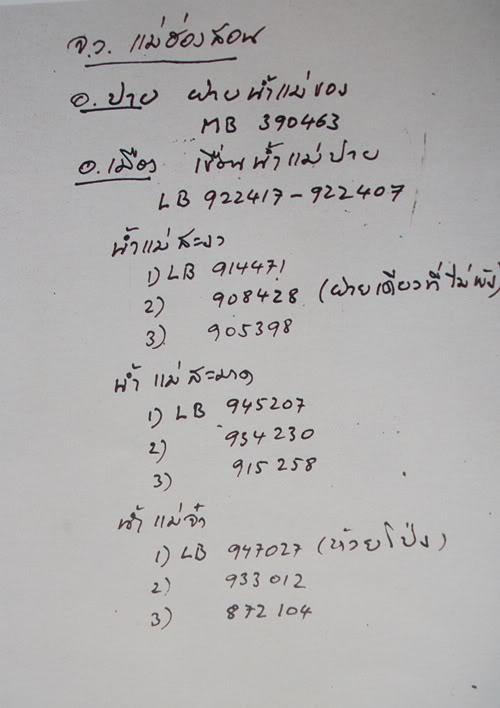 จ.ว. แม่ฮ่องสอน
อ. ปาย ฝายน้ำแม่ของ
MB 390463
อ.เมือง เขื่อนน้ำแม่ปาย
LB 922417 - 922407
น้ำแม่สะงา
1) LB 914471
2) 908428 (ฝายเดียวที่ไม่พัง)
3) 905398
น้ำแม่สะมาด
1) LB 945207
2) 934230
3) 915258
น้ำแม่จ๋า
1) LB 947027 (ห้วยโป่ง)
2) 933012
3) 872104